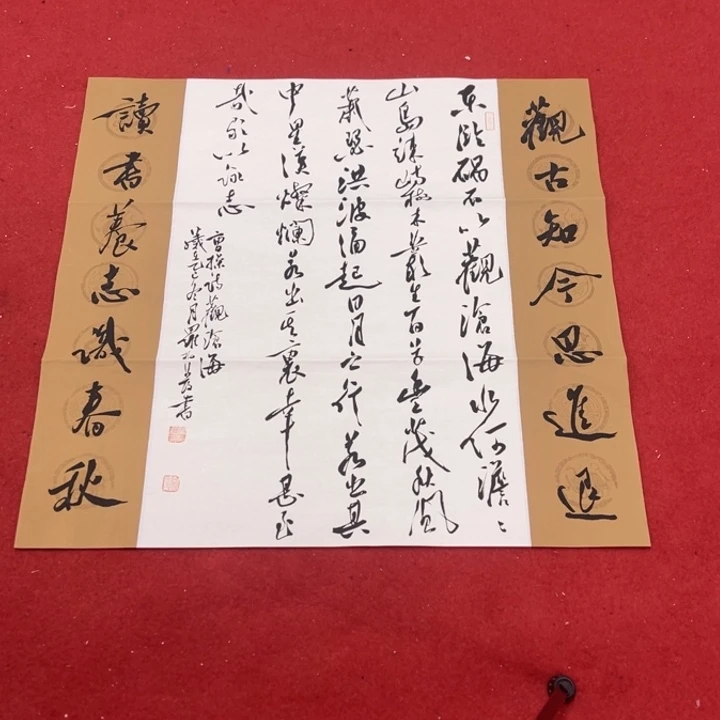 觀古知今思進退
東臨碣石以觀滄海水何澹澹
山島竦峙樹木叢生百草豐茂秋風
蕭瑟洪波涌起日月之行若出其
中星漢燦爛若出其裏幸甚至
哉歌以詠志
曹操詩觀滄海
冬月 書
讀書養志識春秋